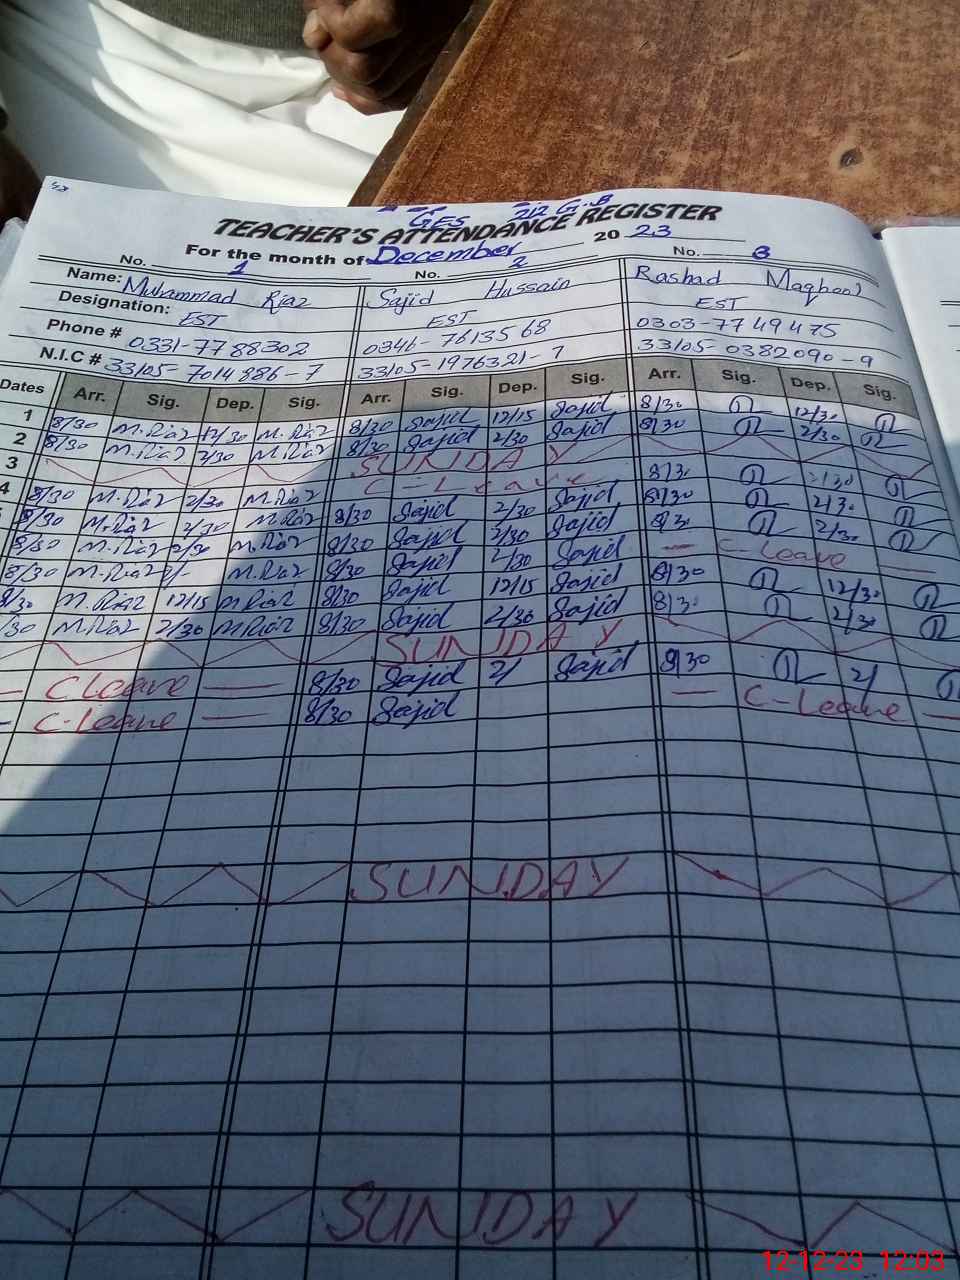 GES 212 G.B
TEACHER'S ATTENDANCE REGISTER
For the month of December 2023
No. 1 No. 2 No. 3
Name: Muhammad Riaz Sajid Hussain Rashad Maqbool
Designation: EST EST EST
Phone # 0331-7788302 0346-7613568 0303-7749475
N.I.C # 33105-7014886-7 33105-1976321-7 33105-0382090-9
Dates Arr. Sig. Dep. Sig. Arr. Sig. Dep. Sig. Arr. Sig. Dep. Sig.
1 8/30 M.Riaz 12/30 M.Riaz 8/30 Sajid 12/15 Sajid 8/30 12/30
2 8/30 M.Riaz 2/30 M.Riaz 8/30 Sajid 2/30 Sajid 8/30 2/30
3 SUNDAY
4 8/30 M.Riaz 2/30 M.Riaz C-Leave 8/30 2/30
8/30 M.Riaz 2/30 M.Riaz 8/30 Sajid 2/30 Sajid 8/30 2/30
8/30 M.Riaz M.Riaz 8/30 Sajid 2/30 Sajid 8/30 2/30
8/30 M.Riaz 2/- M.Riaz 8/30 Sajid 2/30 Sajid — C-Leave —
8/30 M.Riaz 12/15 M.Riaz 8/30 Sajid 12/15 Sajid 8/30 12/30
/30 M.Riaz 2/30 M.Riaz 8/30 Sajid 2/30 Sajid 8/30 2/30
SUNDAY
— C Leave — 8/30 Sajid 2/ Sajid 8/30 2/
— C-Leave — 8/30 Sajid — C-Leave —
SUNDAY
SUNDAY
12-12-23 12:03